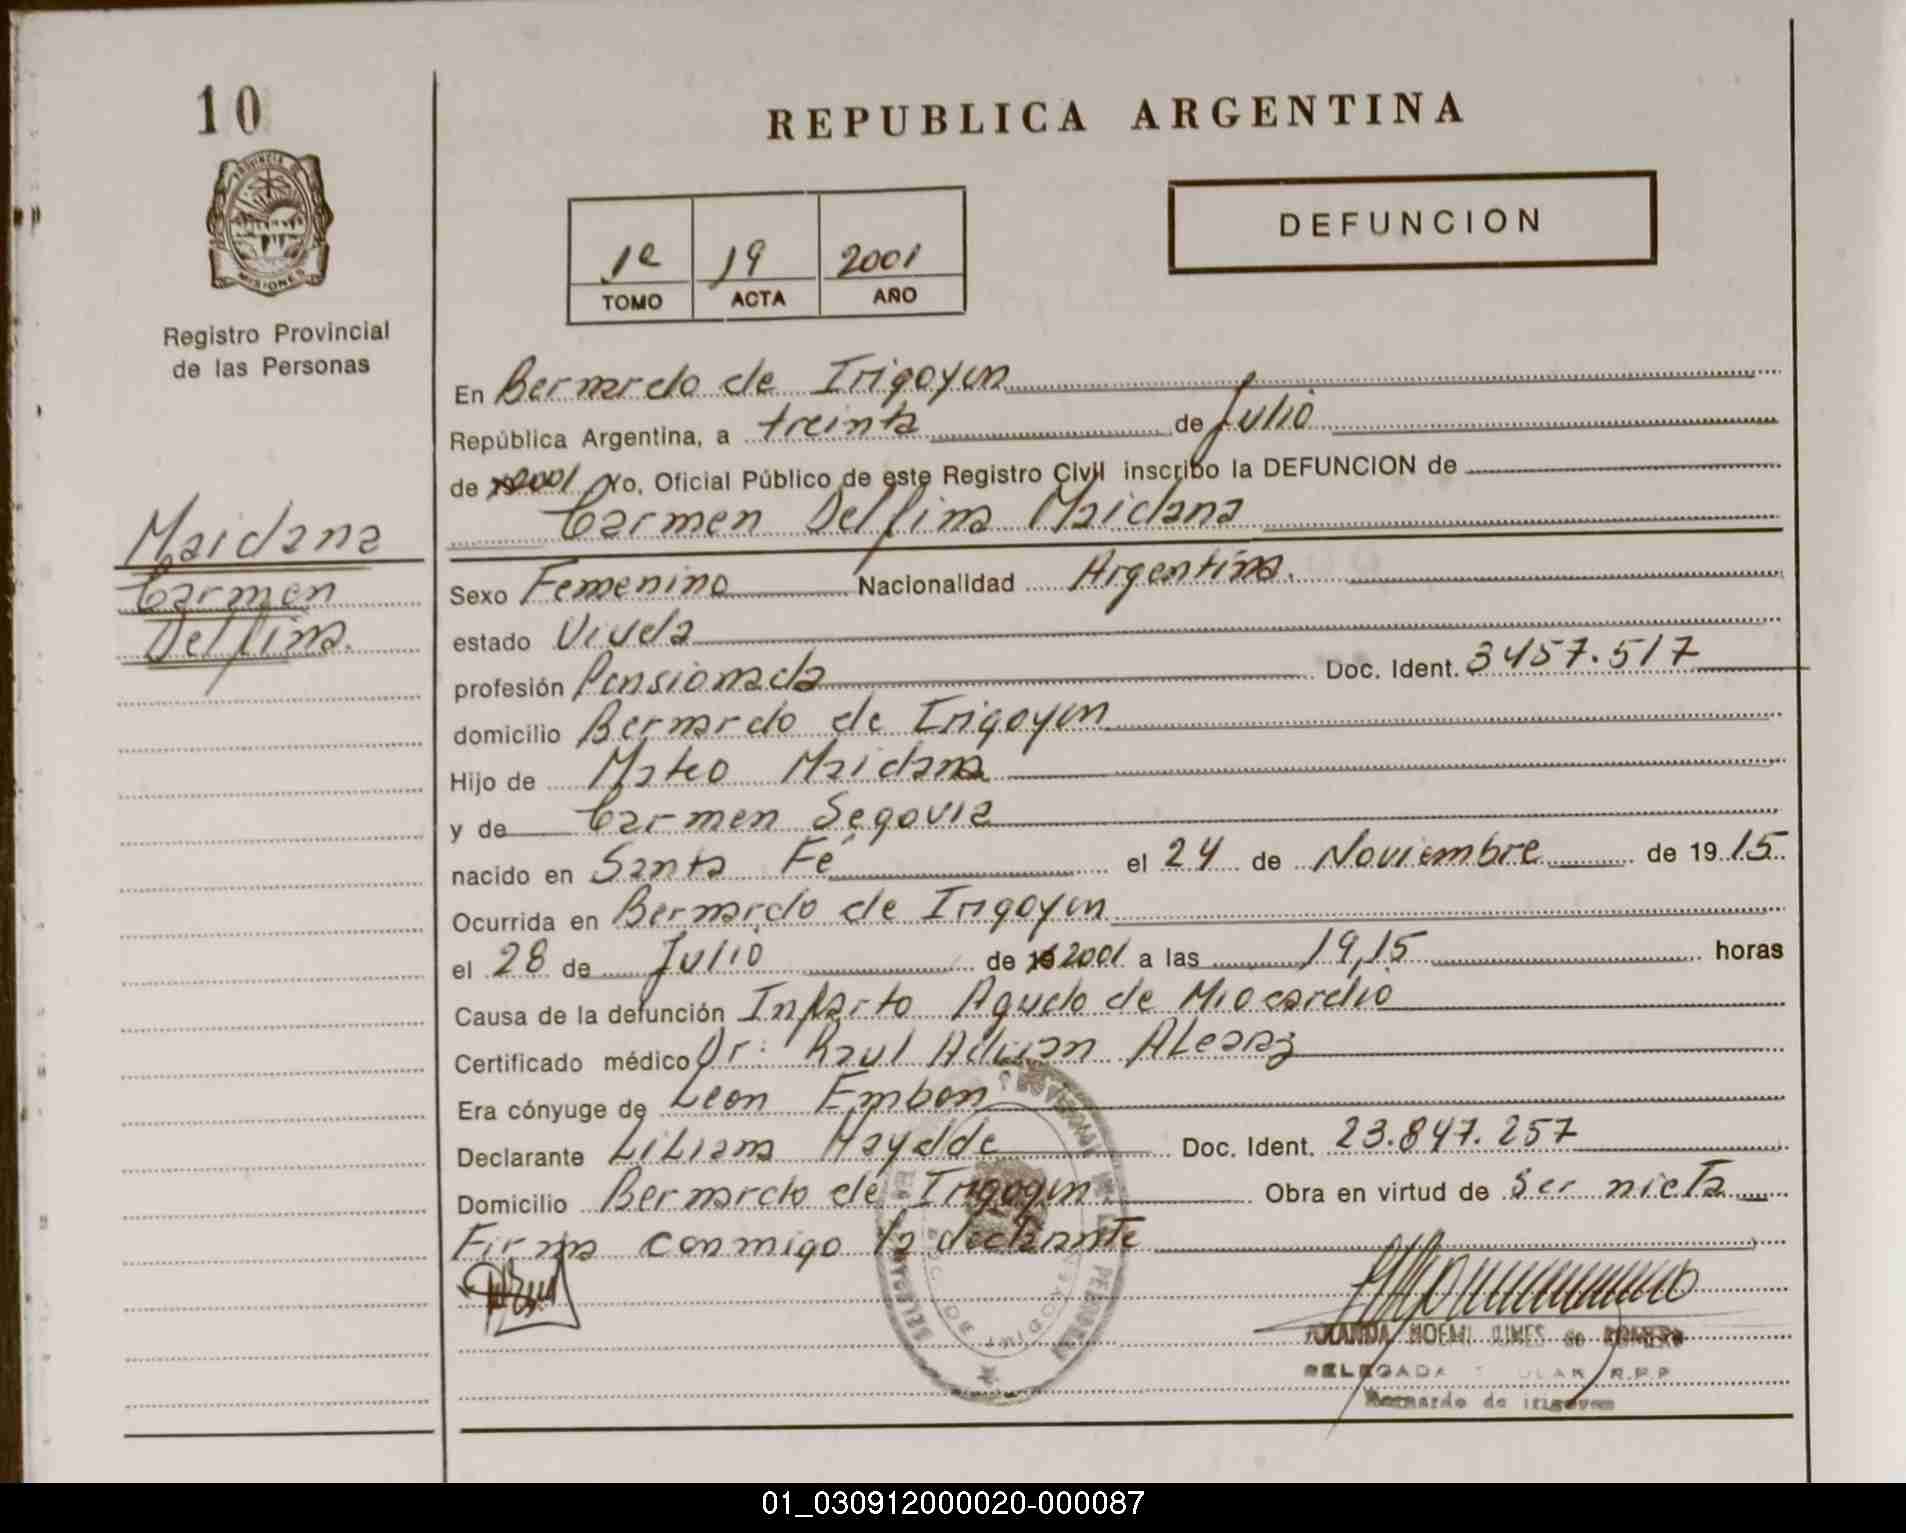 10
REPUBLICA ARGENTINA
PROVINCIA DE
MISIONES
Registro Provincial
de las Personas
1º 19 2001
TOMO ACTA AÑO
DEFUNCION
En Bernardo de Irigoyen
República Argentina, a treinta de Julio
de 2001 Yo, Oficial Público de este Registro Civil inscribo la DEFUNCION de
Carmen Delfina Maidana
Maidana
Carmen
Delfina.
Sexo Femenino Nacionalidad Argentina.
estado Viuda
profesión Pensionada Doc. Ident. 3457.517
domicilio Bernardo de Irigoyen
Hijo de Mateo Maidana
y de Carmen Segovia
nacido en Santa Fé el 24 de Noviembre de 1915
Ocurrida en Bernardo de Irigoyen
el 28 de Julio de 2001 a las 19,15 horas
Causa de la defunción Infarto Agudo de Miocardio
Certificado médico Dr: Raul Adrian ALcaraz
Era cónyuge de Leon Embon
Declarante LiLiana Haydde Doc. Ident. 23.847.257
Domicilio Bernardo de Irigoyen Obra en virtud de Ser nieta
Firma conmigo la declarante
NOEMI
DELEGADA R.P.P
Bernardo de Irigoyen
01_030912000020-000087